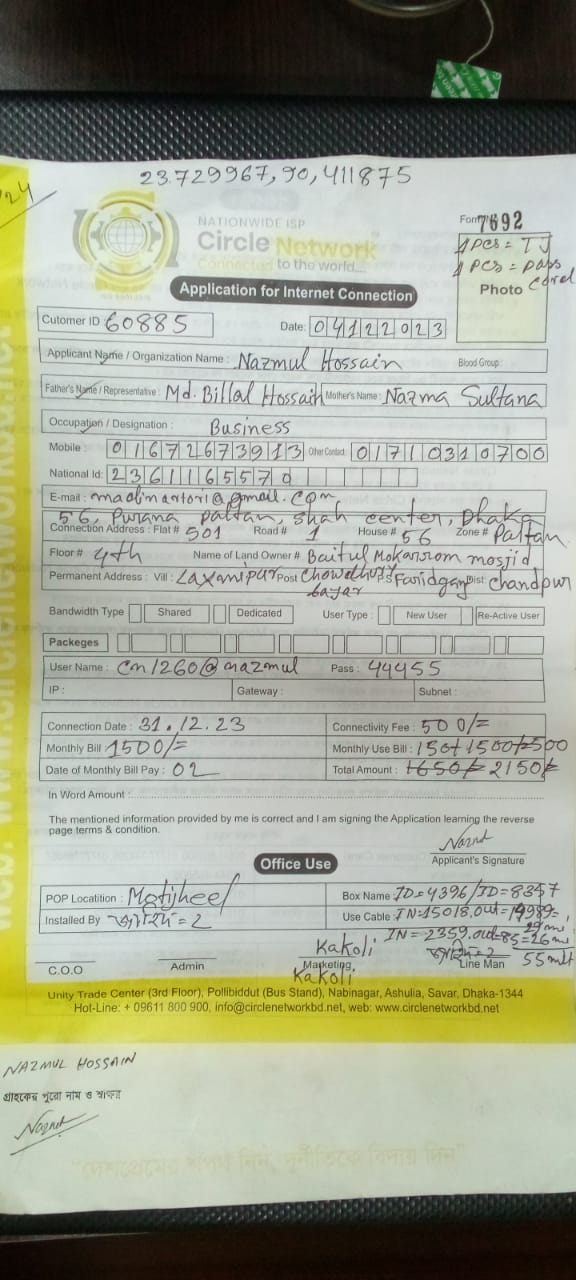 24
23.729967, 90, 411875
NATIONWIDE ISP
Circle Network
Connected to the world....
Form 7692
1 pcs = TJ
1 pcs = pass
Photo
Application for Internet Connection
Cutomer ID 60885
Date: 04122023
Applicant Name / Organization Name : Nazmul Hossain Blood Group :
Father's Name / Representative : Md. Billal Hossain Mother's Name : Nazma Sultana
Occupation / Designation : Business
Mobile : 01672673913 Other Contact: 01710310700
National Id: 2361165570
E-mail :
56, Purana paltan, shah center, Dhaka
Connection Address : Flat # 501 Road # 1 House # 56 Zone # Paltan
Floor # 4th Name of Land Owner # Baitul Mokarrom mosjid
Permanent Address : Vill : Laxmipur Post Chowdhury bazar P.S Faridganj Dist: chandpur
Bandwidth Type Shared Dedicated User Type : New User Re-Active User
Packeges
User Name : cn1260@nazmul Pass : 44455
IP : Gateway : Subnet :
Connection Date : 31.12.23 Connectivity Fee : 500/=
Monthly Bill 1500/= Monthly Use Bill : 150+1500+500
Date of Monthly Bill Pay : 02 Total Amount : 1650/= 2150/=
In Word Amount :
The mentioned information provided by me is correct and I am signing the Application learning the reverse
page terms & condition.
Applicant's Signature
Office Use
POP Locatition : Motijheel Box Name ID=4396/ID=8357
Installed By Use Cable : IN=15018, out=14989=
29 m
Kakoli IN=2359, out=85=26 m
C.O.O Admin Marketing Line Man 55 mit
Kakoli
Unity Trade Center (3rd Floor), Pollibiddut (Bus Stand), Nabinagar, Ashulia, Savar, Dhaka-1344
Hot-Line: + 09611 800 900, info@circlenetworkbd.net, web: www.circlenetworkbd.net
NAZMUL HOSSAIN
গ্রাহকের পুরো নাম ও স্বাক্ষর
"দেশপ্রেমের শপথ নিন, দুর্নীতিকে বিদায় দিন"